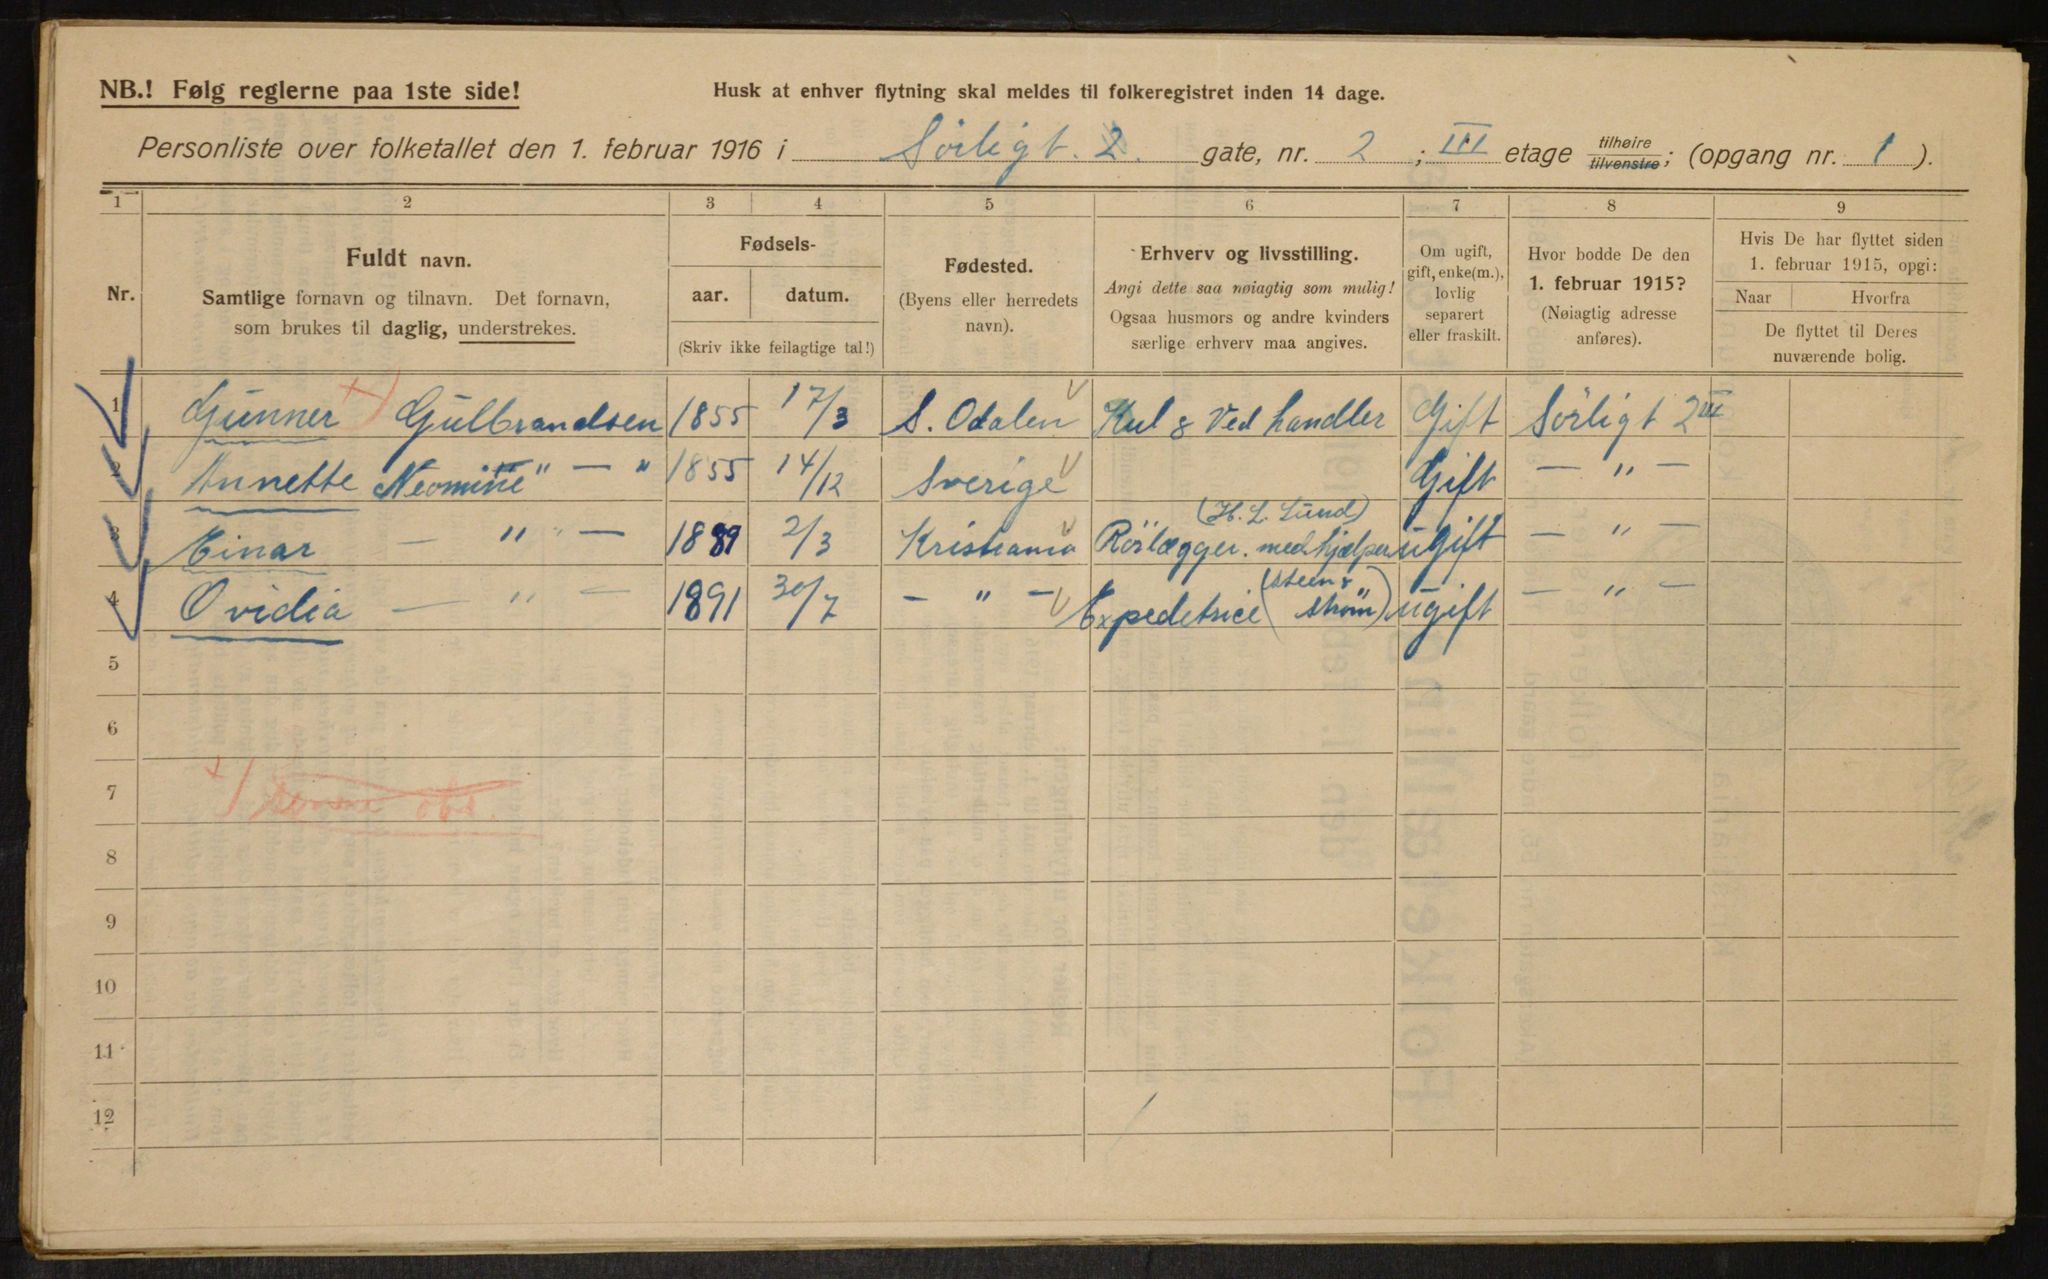 NB.! Følg reglerne paa 1ste side!
Husk at enhver flytning skal meldes til folkeregistret inden 14 dage.
Personliste over folketallet den 1. februar 1916 i Sörligt. 2. gate, nr. 2 ; III etage tilhøire tilvenstre; (opgang nr. 1 ).
1 2 3 4 5 6 7 8 9
Nr.
Fuldt navn.
Samtlige fornavn og tilnavn. Det fornavn,
som brukes til daglig, understrekes.
Fødsels-
aar. datum.
(Skriv ikke feilagtige tal!)
Fødested.
(Byens eller herredets
navn).
Erhverv og livsstilling.
Angi dette saa nøiagtig som mulig!
Ogsaa husmors og andre kvinders
særlige erhverv maa angives.
Om ugift,
gift, enke(m.),
lovlig
separert
eller fraskilt.
Hvor bodde De den
1. februar 1915?
(Nøiagtig adresse
anføres).
Hvis De har flyttet siden
1. februar 1915, opgi:
Naar Hvorfra
De flyttet til Deres
nuværende bolig.
1 Gunner +) Gulbrandsen 1855 17/3 S. Odalen Kul & Ved handler Gift Sörligt 2 III
2 Annette Neomine " — " 1855 14/12 Sverige Gift — " —
3 Einar — " — 1889 2/3 Kristiania Rörlægger. medhjælper (H. L. Lund) ugift — " —
4 Ovidia — " — 1891 30/7 — " — Expeditrice (Steen & Strøm) ugift — " —
5
6
7 +) obs.
8
9
10
11
12